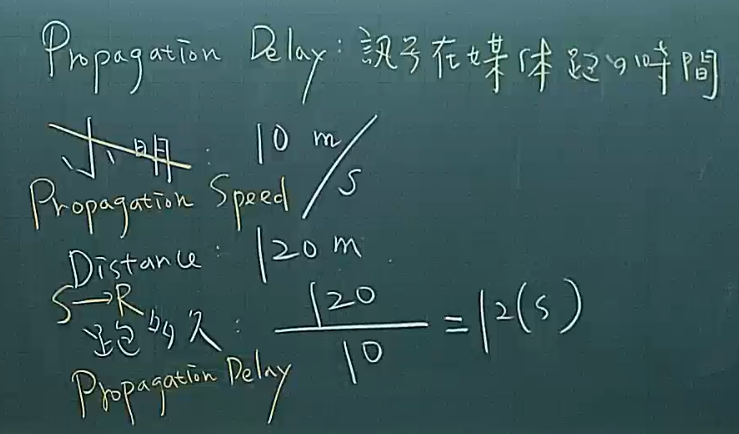 Propagation Delay: 訊号在媒体跑的時間
小明: 10 m/s
Propagation Speed
Distance: 120 m
S→R
跑多久: 120/10 = 12(s)
Propagation Delay